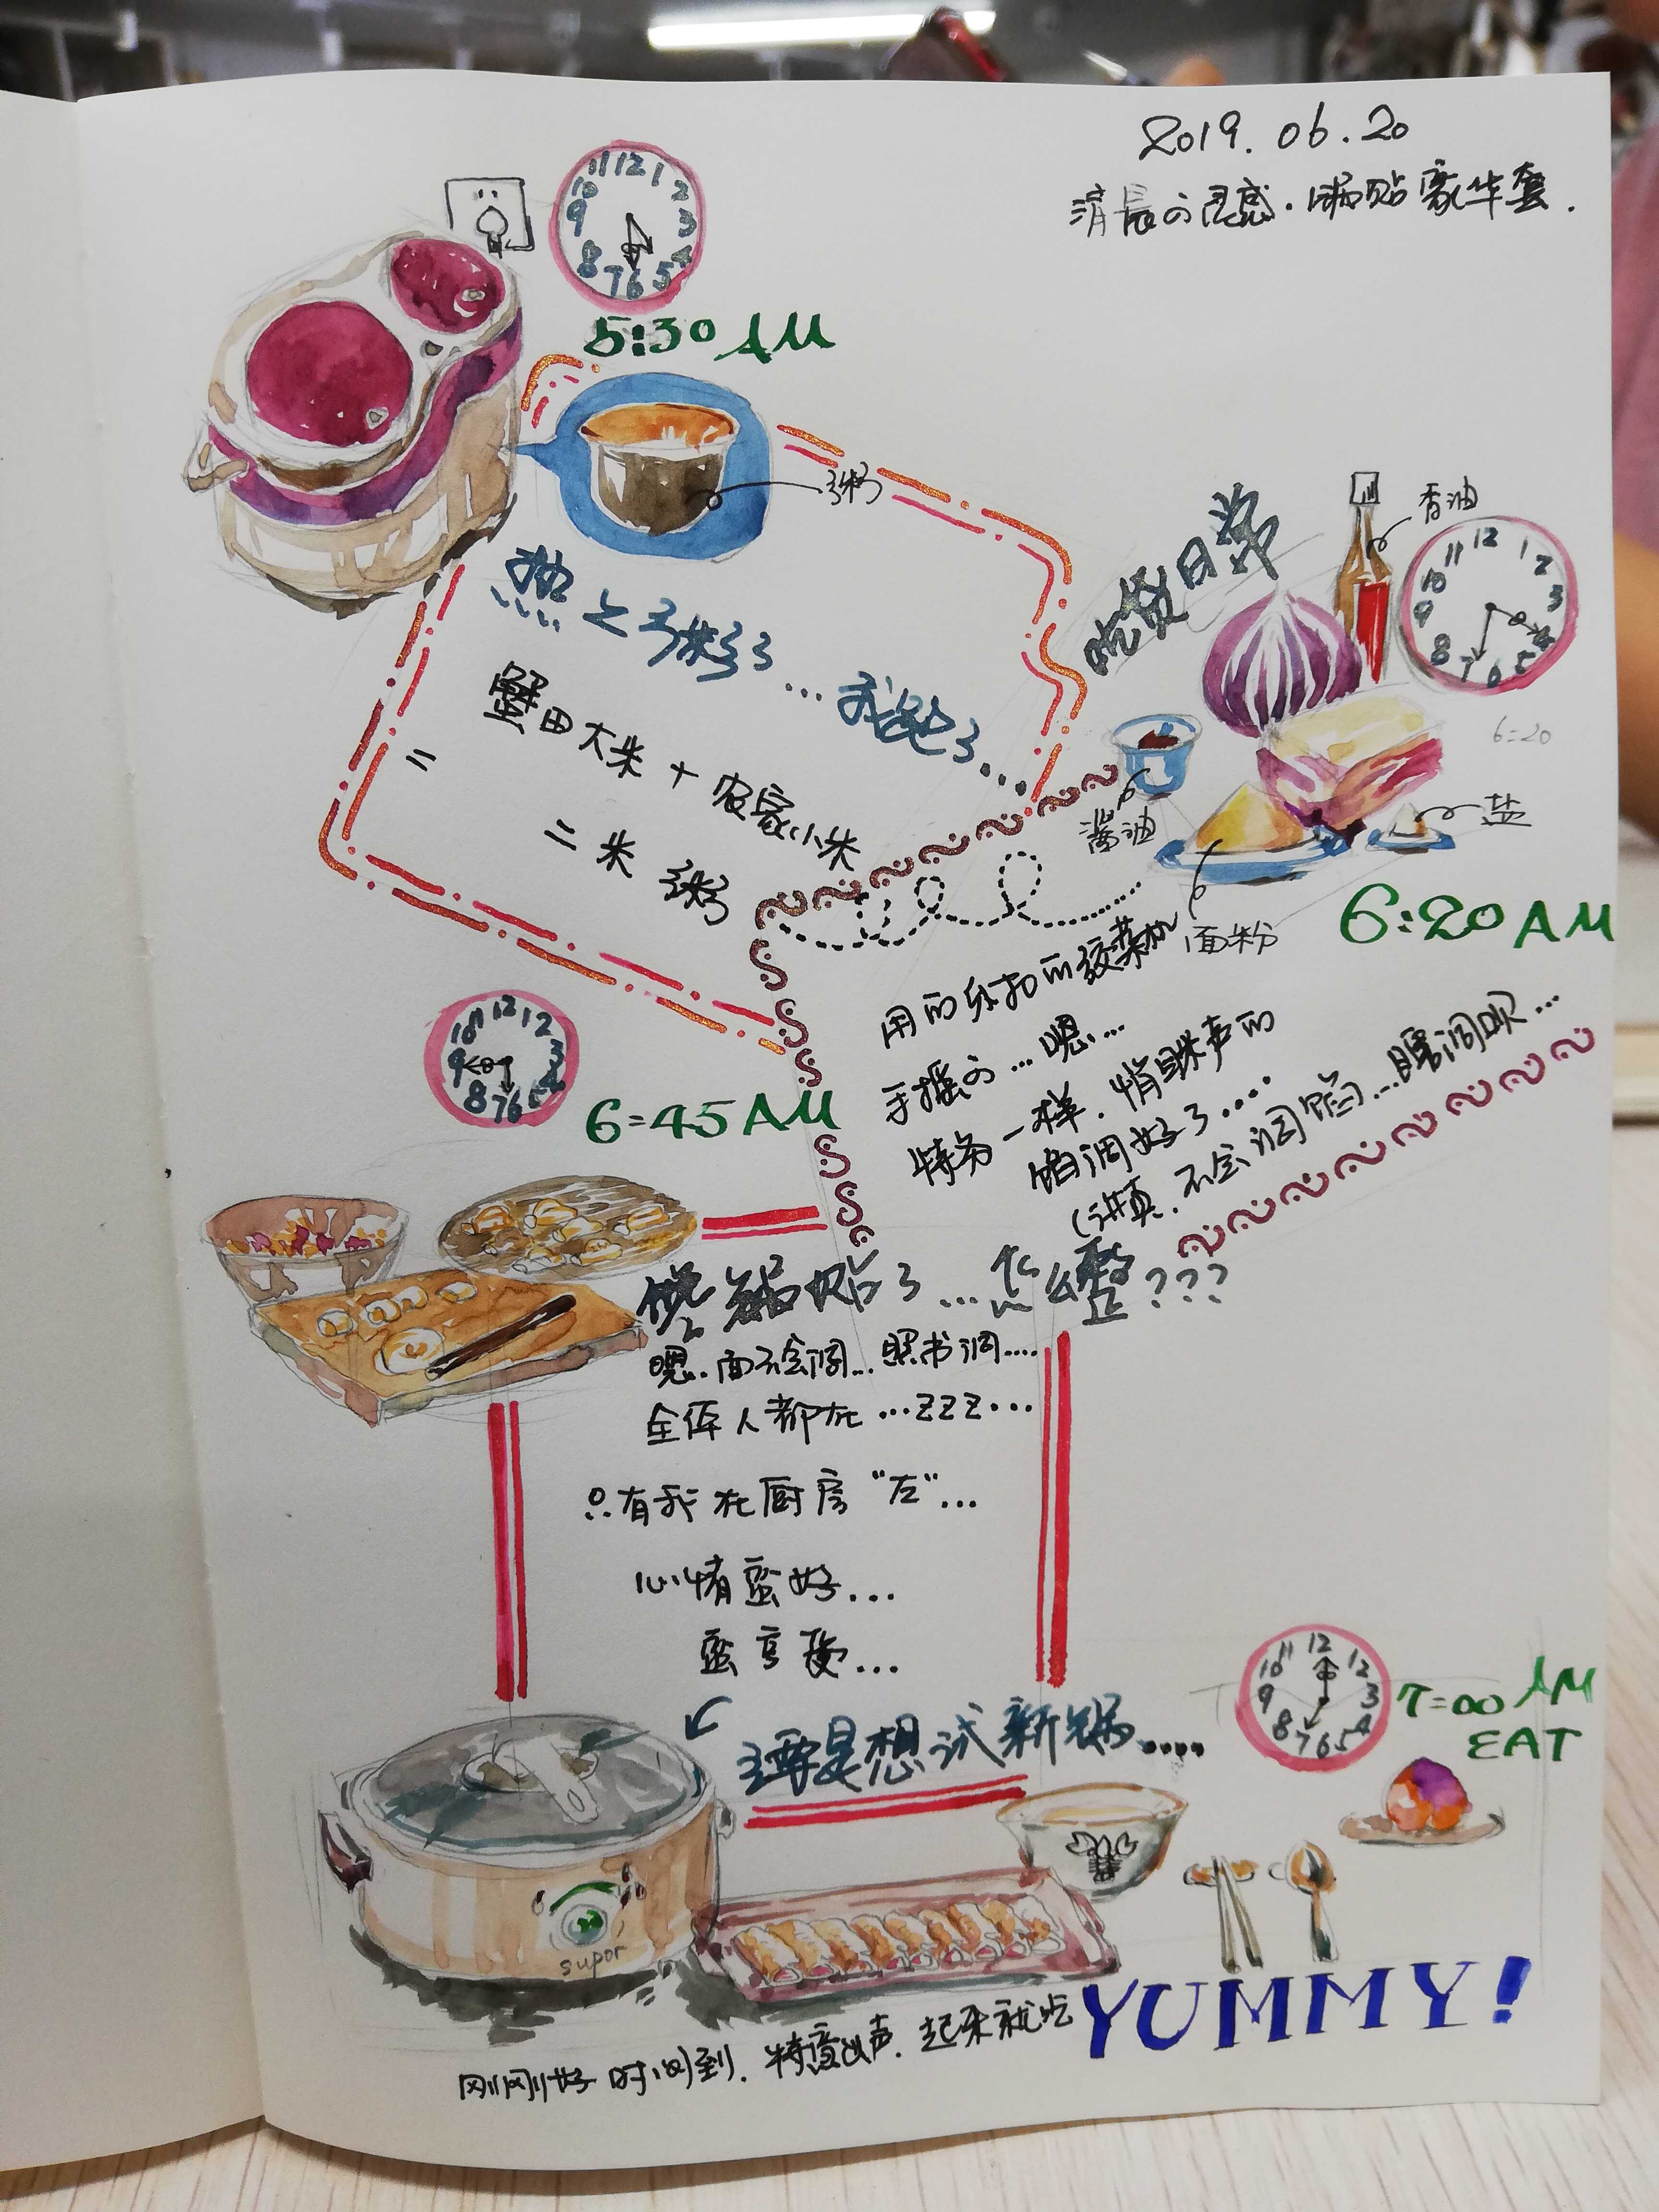 2019.06.20
清晨的灵感·锅贴豪华套.
5:30 AM
粥
熬上粥了...我起了...
蟹田大米 + 农家小米
= 二米粥
吃货日常
香油
酱油
盐
面粉
6:20
6:20 AM
用的外扣的绞菜机
手摇的...嗯...
特务一样.悄眯声的
馅调好了....
(讲真.不会调馅...瞎调呗...
6:45 AM
馋锅贴了...怎么整???
嗯..面不会调...照书调....
全体人都在...ZZZ...
只有我在厨房“在”...
心情蛮好...
蛮享受...
主要是想试新锅....
7:00 AM
EAT
supor
YUMMY!
刚刚好时间到.起来就吃